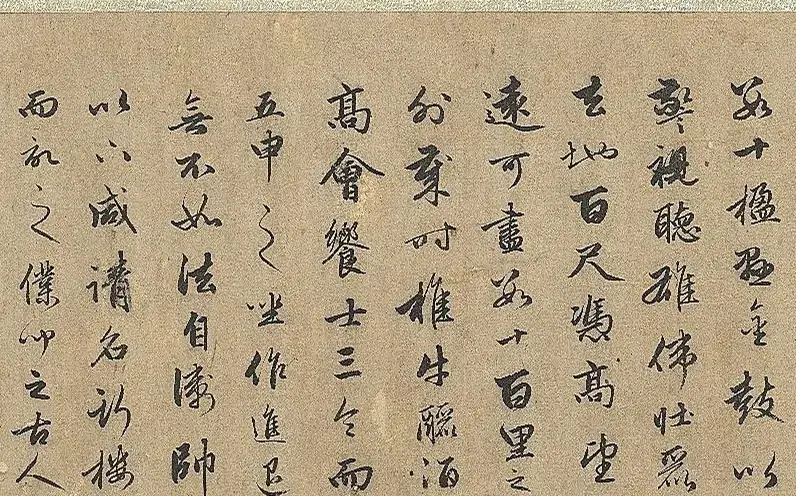 數十楹懸金鼓以
警視聽雄偉壯麗
去地百尺憑高望
遠可盡數十百里之
外歲時椎牛釃酒
高會饗士三令而
五申之坐作進退
無不如法自衛帥
以下咸請名樓
而記之僕聞之古人